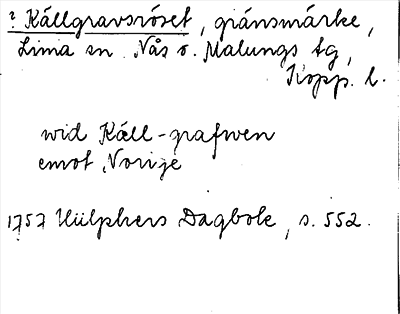 ? Källgravsröset, gränsmärke,
Lima sn Nås o. Malungs tg,
Kopp. l.
wid Käll-grafwen
emot Norige
1757 Hülphers Dagbok, s. 552.